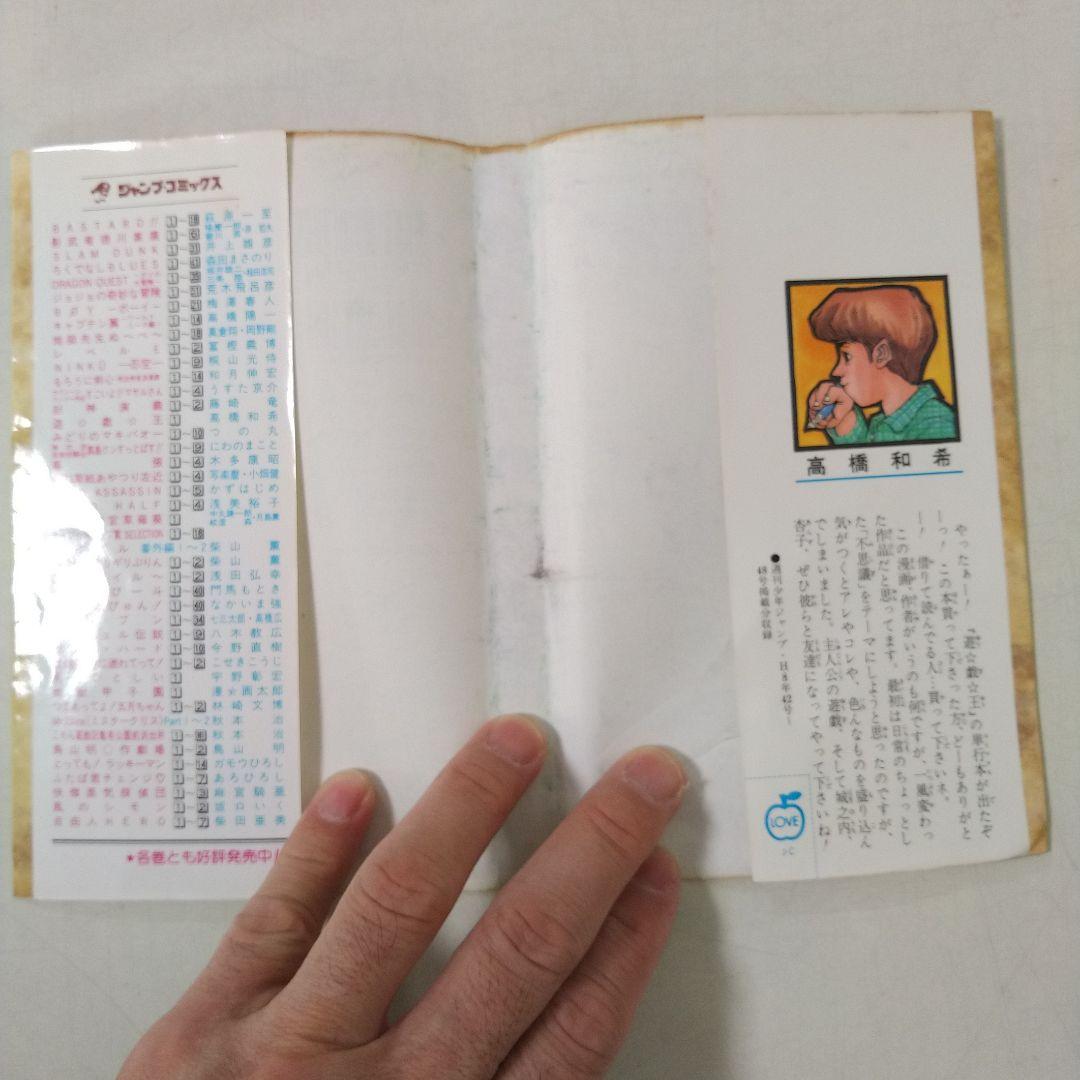 ジャンプ・コミックス
BASTARD!! 1〜18 萩原一至
影武者徳川家康 1〜6
SLAM DUNK 1〜31 井上雄彦
ろくでなしBLUES 1〜41 森田まさのり
DRAGON QUEST
ジョジョの奇妙な冒険 荒木飛呂彦
BØY―ボーイ― 1〜21 梅澤春人
キャプテン翼 1〜14 高橋陽一
地獄先生ぬ〜べ〜 1〜18 真倉翔・岡野剛
レベルE 1〜2 冨樫義博
NINKU―忍空― 1〜9 桐山光侍
るろうに剣心 1〜14 和月伸宏
すごいよ!!マサルさん 1〜4 うすた京介
封神演義 1〜2 藤崎竜
遊☆戯☆王 1 高橋和希
みどりのマキバオー 1〜10 つの丸
1〜9 にわのまこと
1〜4 木多康昭
あやつり左近 1〜4 写楽麿・小畑健
ASSASSIN 1〜5 かずはじめ
HALF 1〜4 浅美裕子
SELECTION 1〜18
ル 番外編1〜2 柴山薫
1〜2 柴山薫
イル〜 1〜2 浅田弘幸
1〜40 門馬もとき
1〜40 なかいま強
ブン 1〜34 七三太郎・高橋広
ュル伝説 1〜9 八木教広
・ハード 1〜10 今野直樹
に連れてって! 1〜2 こせきこうじ
1 宇野彰宏
甲子園 1 漫☆画太郎
五月ちゃん 1〜2 林崎文博
Mr.Clice(ミスタークリス)Part1〜2 秋本治
こちら葛飾区亀有公園前派出所 秋本治
鳥山明○作劇場 1〜2 鳥山明
とっても!ラッキーマン 1〜14 ガモウひろし
ふたば君チェンジ♡ 1〜7 あろひろし
快傑蒸気探偵団 1〜3 麻宮騎亜
風のシモン 1〜2 坂口いく
自由人HERO 1〜7 柴田亜美
★各巻とも好評発売中!
高橋和希
やったぁー!『遊☆戯☆王』の単行本が出たぞ
ーっ!この本買って下さった方、どーもありがと
ー!借りて読んでる人…買って下さいネ。
この漫画、作者がいうのも何ですが、一風変わっ
た作品だと思ってます。最初は日常のちょっとし
た「不思議」をテーマにしようと思ったのですが、
気がつくとアレやコレや、色んなものを盛り込ん
でしまいました。主人公の遊戯、そして城之内、
杏子、ぜひ彼らと友達になってやって下さいね!
●週刊少年ジャンプ・H8年42号〜
48号掲載分収録
LOVE
JC